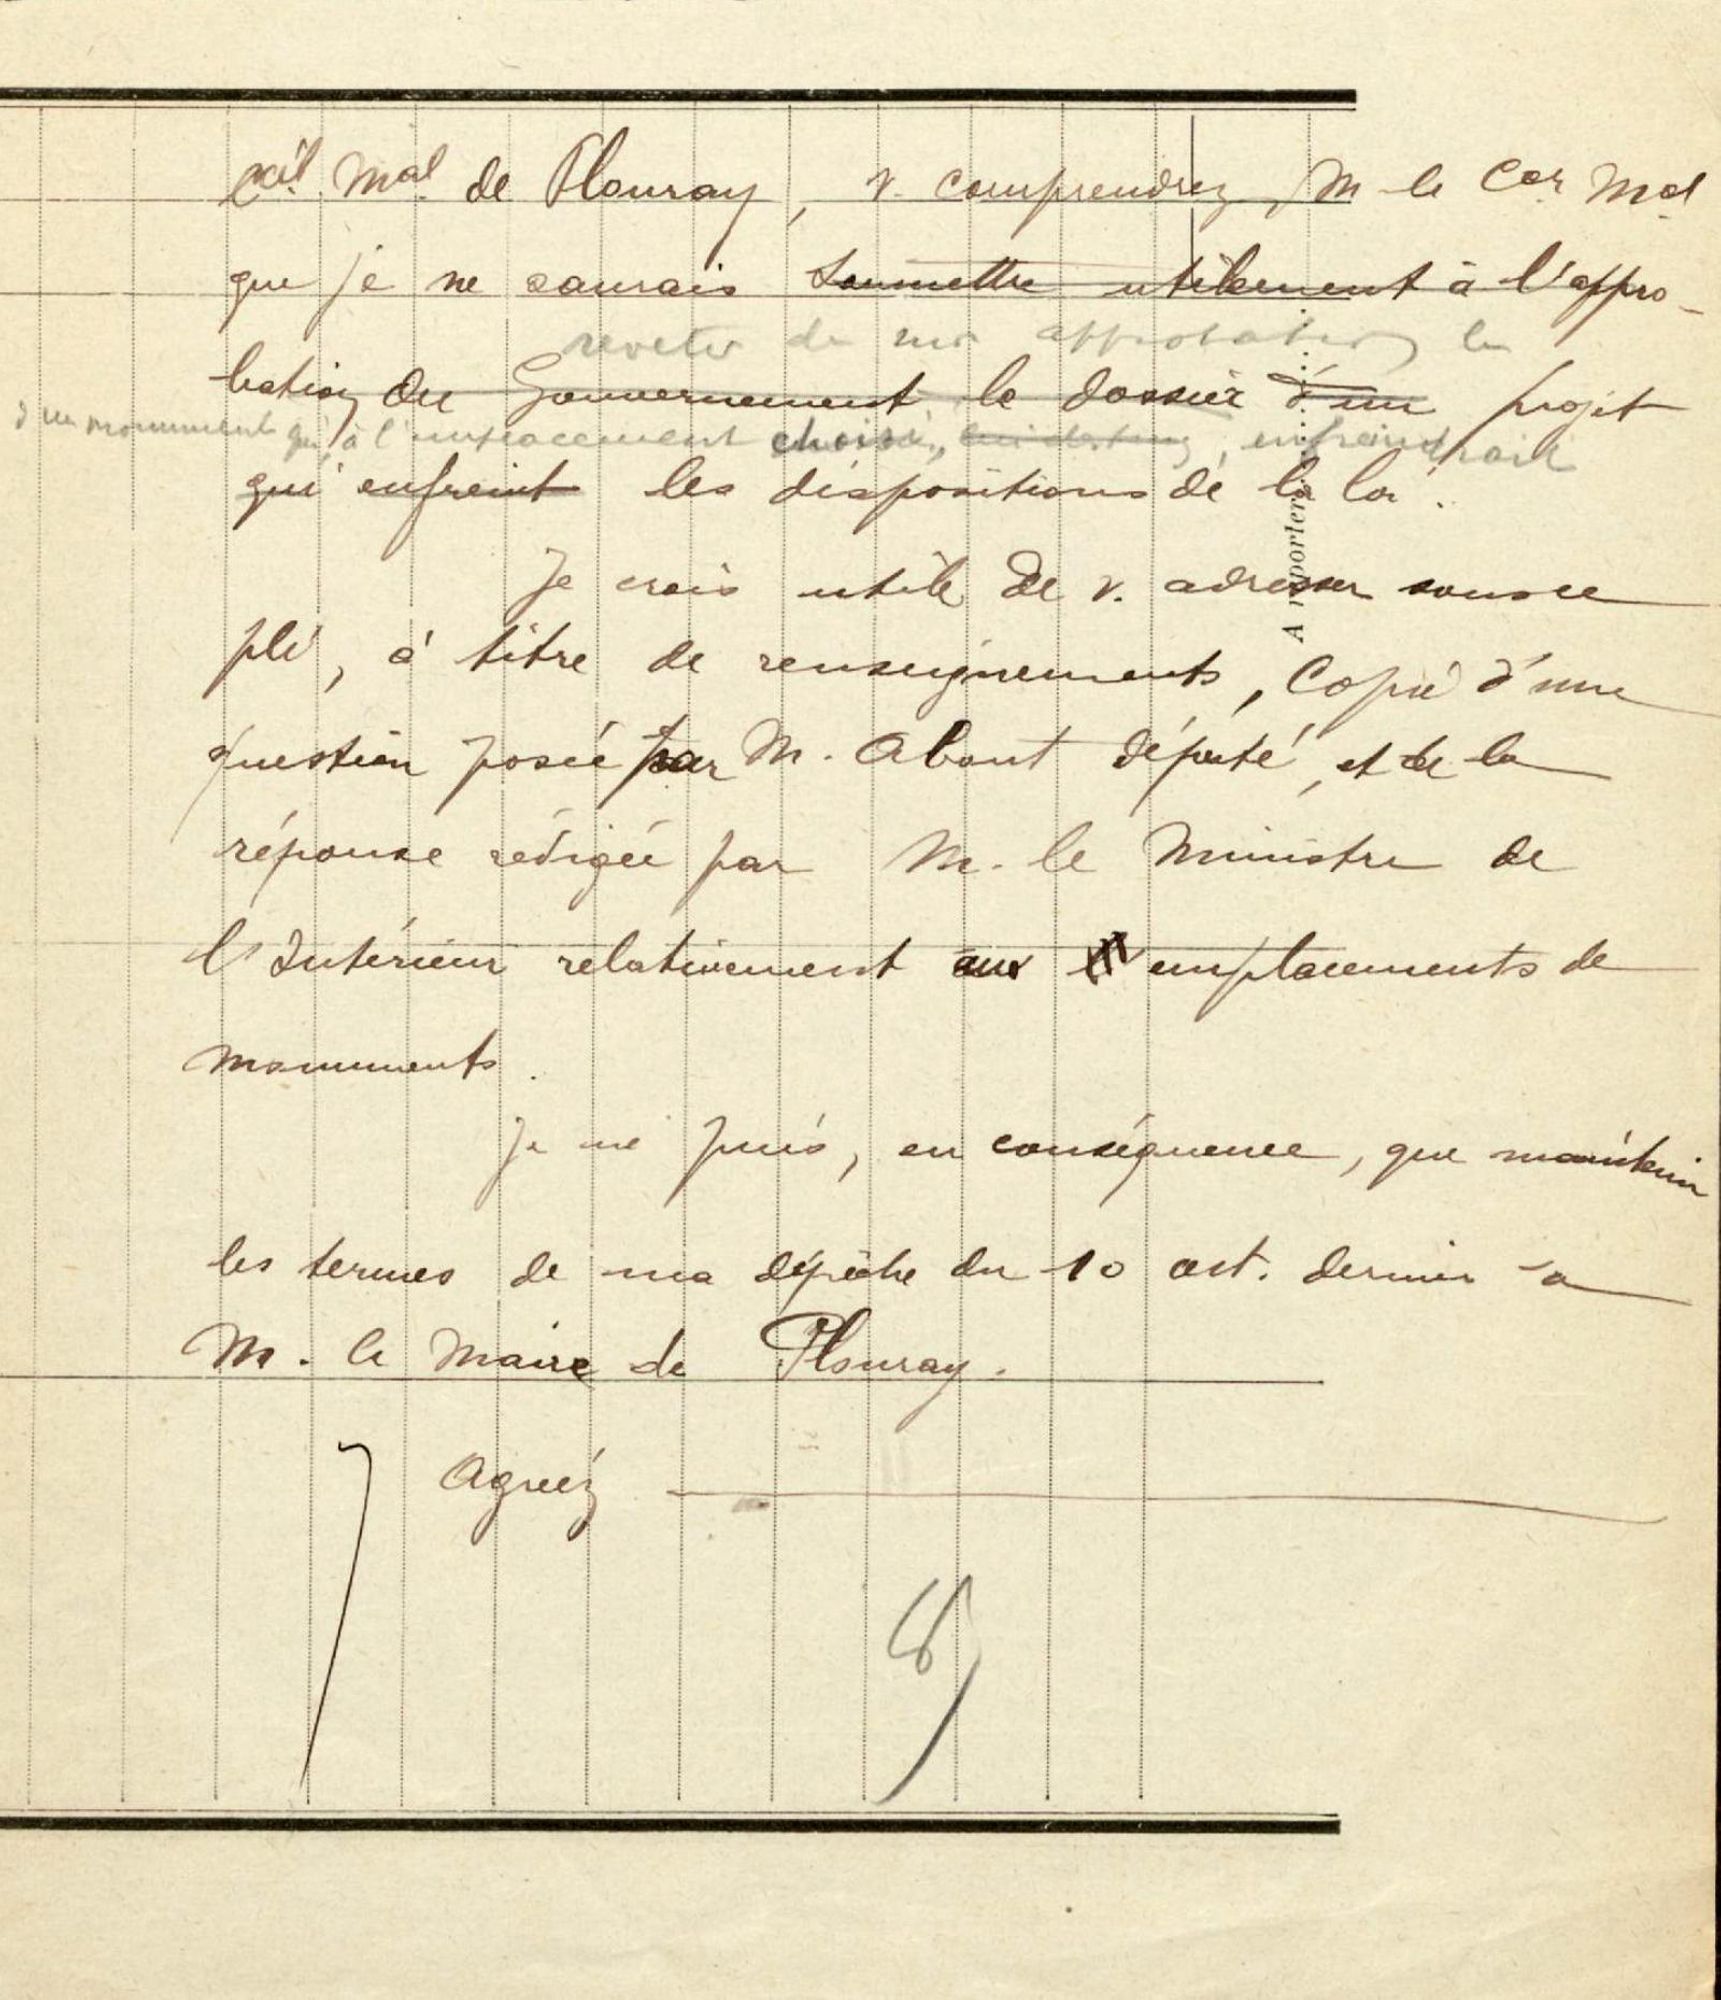 Cail Mal de Plouray, v. comprendrez, M le Cer Mal
que je ne saurais soumettre utilement à l'appro-
revêtir de mon approbation le
bation du Gouvernement le dossier d'un projet
d'un monument qui, à l'emplacement choisi, enfreindrait
qui enfreint les dispositions de la loi.
Je crois utile de v. adresser sous ce
pli, à titre de renseignements, copie d'une
question posée par M. About député, et de la
réponse rédigée par M. le Ministre de
l'Intérieur relativement aux emplacements de
monuments.
Je ne puis, en conséquence, que maintenir
les termes de ma dépêche du 10 oct. dernier à
M. le Maire de Plouray.
Agréez
A reporter